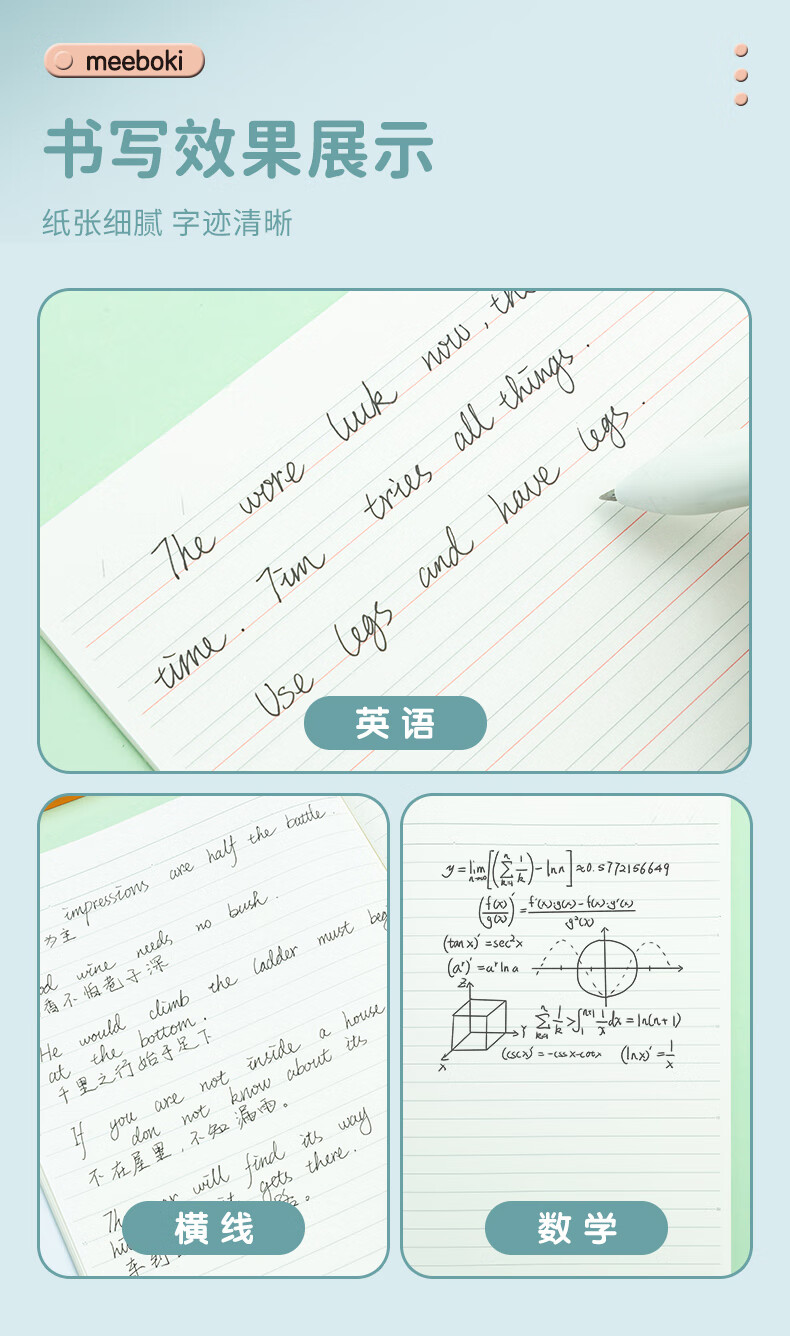 meeboki
书写效果展示
纸张细腻 字迹清晰
The wore luuk now, th
time. Tim tries all things.
Use legs and have legs.
英语
impressions are half the battle.
为主
od wine needs no bush.
香不怕巷子深
He would climb the ladder must beg
at the bottom.
千里之行始于足下
If you are not inside a house
don not know about its
不在屋里,不知漏雨。
will find its way
gets there.
横线
y=lim n→∞[(∑ n k=1 1/k)-ln n]≈0.5772156649
(f(x)/g(x))'=f'(x)·g(x)-f(x)·g'(x)/g²(x)
(tan x)'=sec²x
(aˣ)'=aˣ ln a
Z
Y
X
∑ n k=1 1/k>∫ n+1 1 1/x dx=ln(n+1)
(csc x)'=-csc x·cot x (ln x)'=1/x
数学